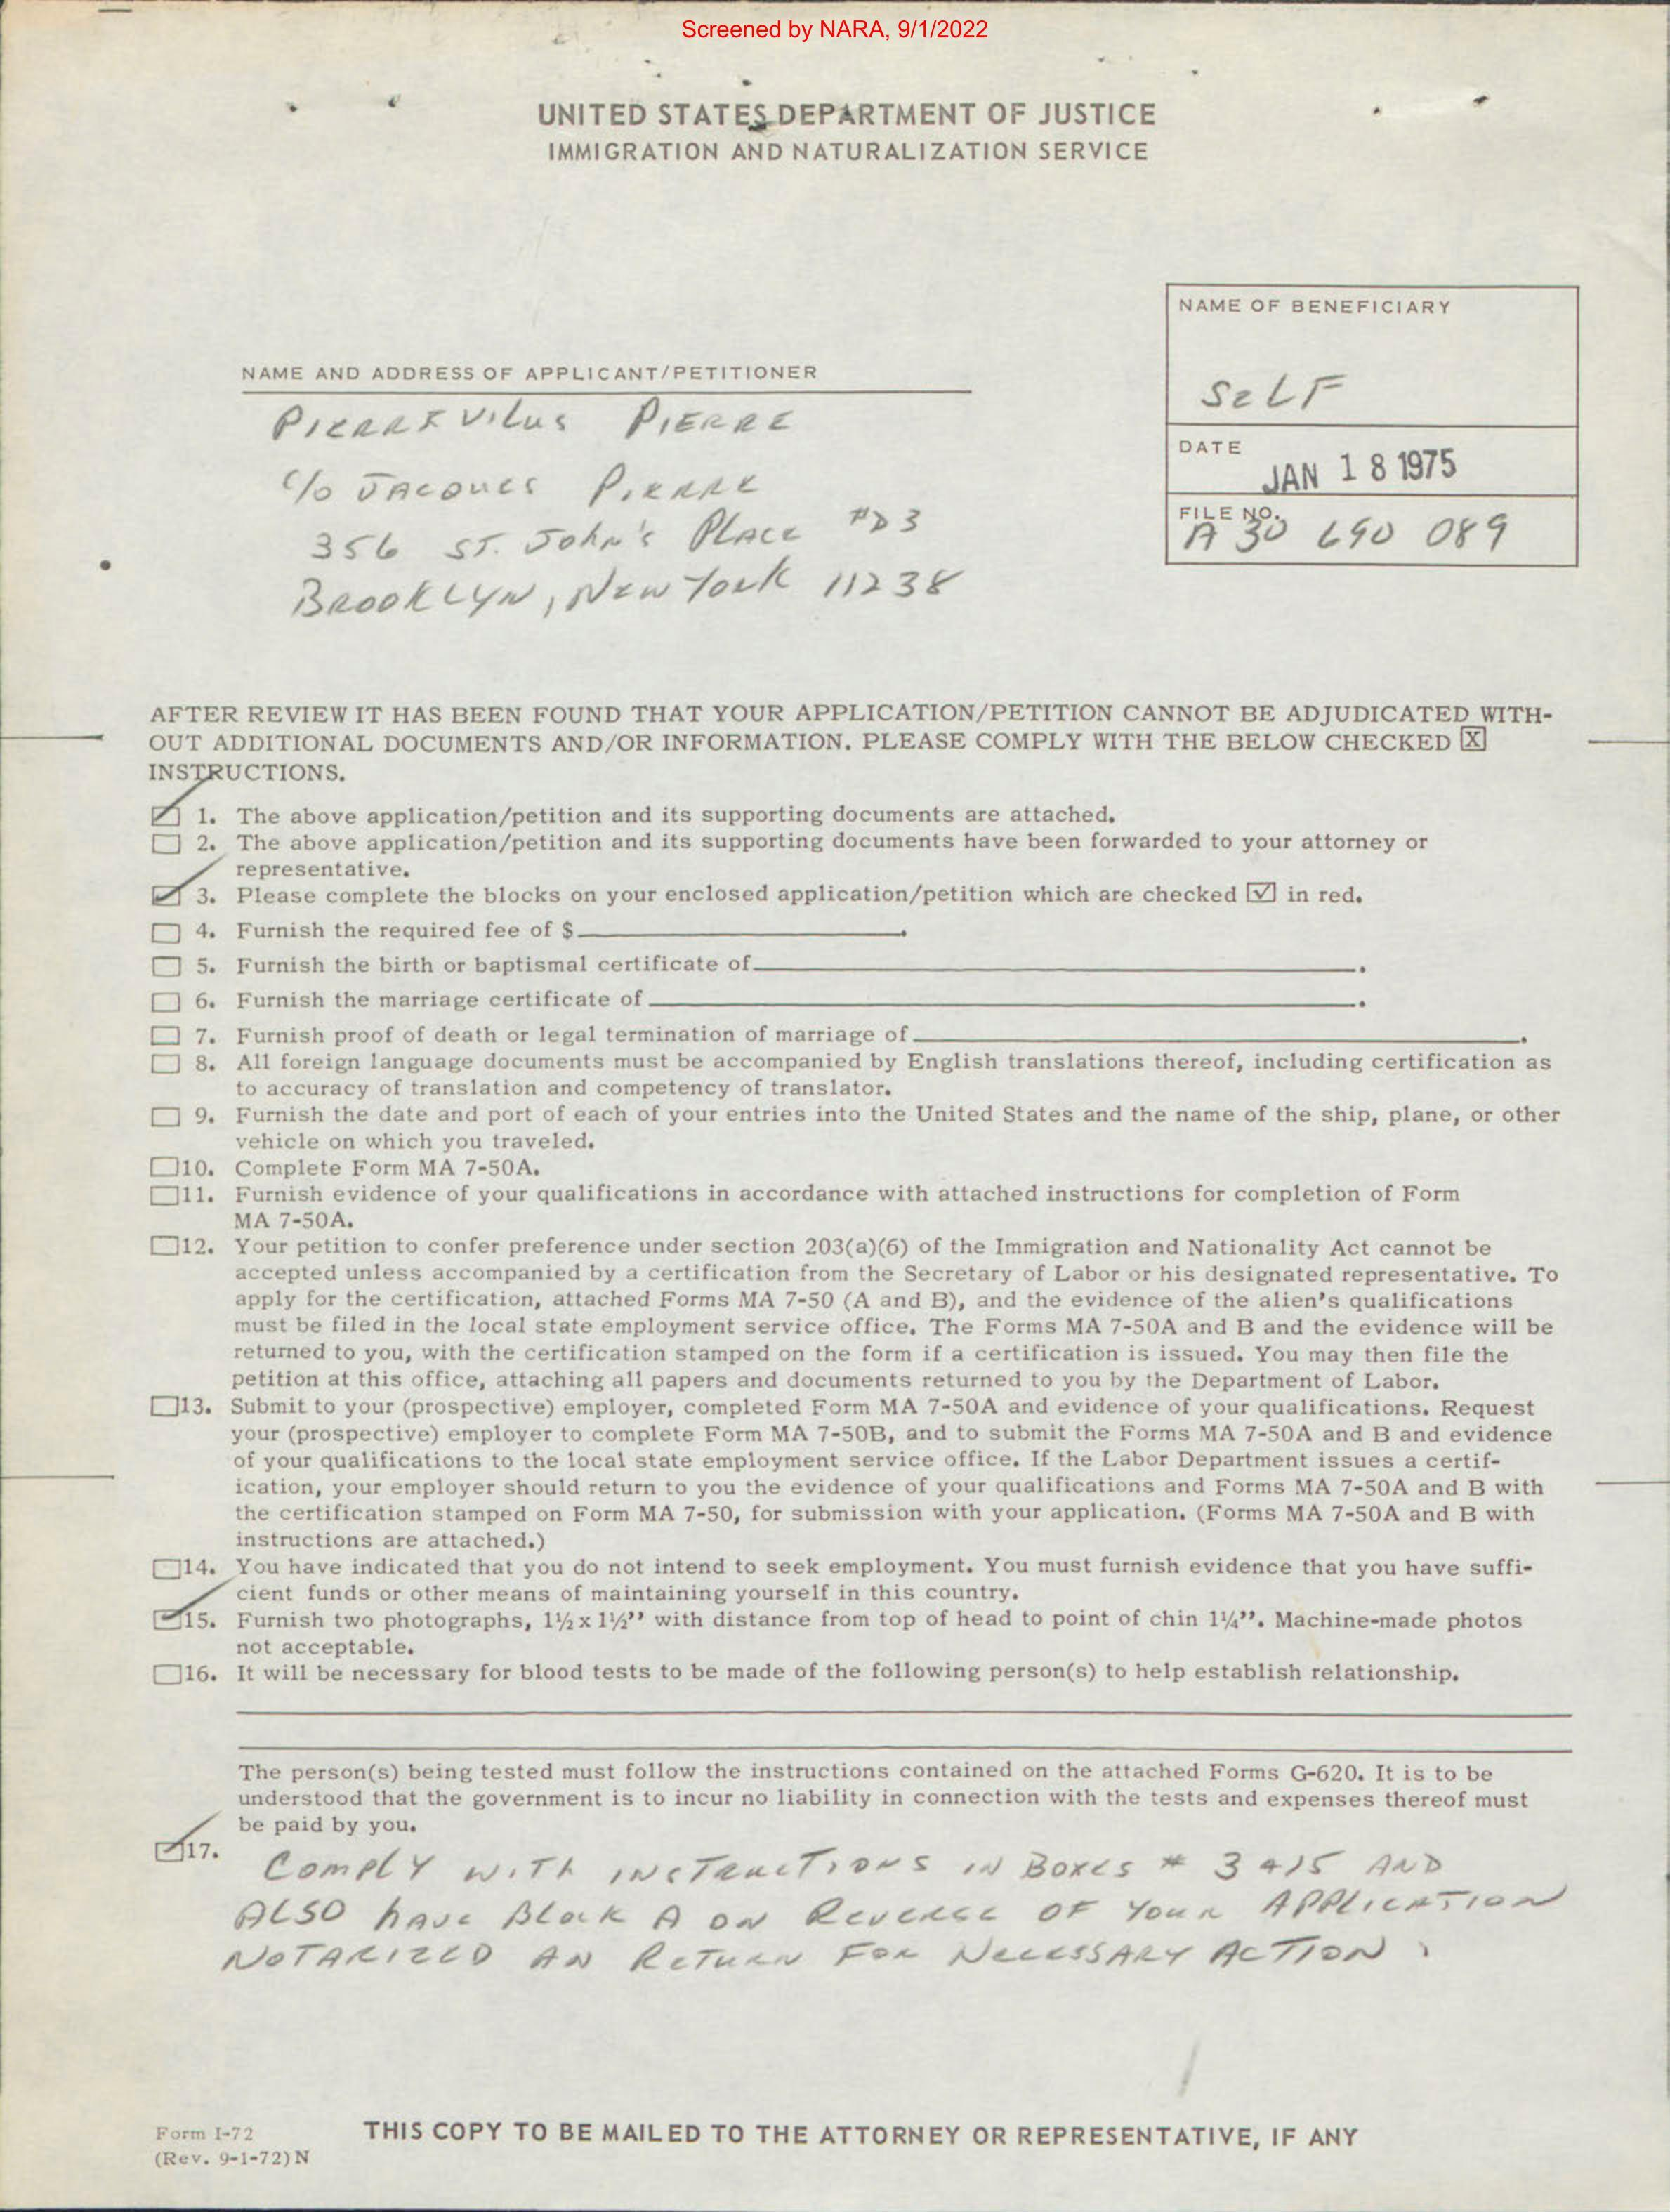 Screened by NARA, 9/1/2022
UNITED STATES DEPARTMENT OF JUSTICE
IMMIGRATION AND NATURALIZATION SERVICE
NAME OF BENEFICIARY
SELF
DATE
JAN 18 1975
FILE NO.
A 30 690 089
NAME AND ADDRESS OF APPLICANT/PETITIONER
PIERRE VILUS PIERRE
c/o JACQUES PIERRE
356 ST. JOHN'S PLACE #D3
BROOKLYN, NEW YORK 11238
AFTER REVIEW IT HAS BEEN FOUND THAT YOUR APPLICATION/PETITION CANNOT BE ADJUDICATED WITH-
OUT ADDITIONAL DOCUMENTS AND/OR INFORMATION. PLEASE COMPLY WITH THE BELOW CHECKED ☒
INSTRUCTIONS.
☑ 1. The above application/petition and its supporting documents are attached.
☐ 2. The above application/petition and its supporting documents have been forwarded to your attorney or
representative.
☑ 3. Please complete the blocks on your enclosed application/petition which are checked ☑ in red.
☐ 4. Furnish the required fee of $ .
☐ 5. Furnish the birth or baptismal certificate of .
☐ 6. Furnish the marriage certificate of .
☐ 7. Furnish proof of death or legal termination of marriage of .
☐ 8. All foreign language documents must be accompanied by English translations thereof, including certification as
to accuracy of translation and competency of translator.
☐ 9. Furnish the date and port of each of your entries into the United States and the name of the ship, plane, or other
vehicle on which you traveled.
☐ 10. Complete Form MA 7-50A.
☐ 11. Furnish evidence of your qualifications in accordance with attached instructions for completion of Form
MA 7-50A.
☐ 12. Your petition to confer preference under section 203(a)(6) of the Immigration and Nationality Act cannot be
accepted unless accompanied by a certification from the Secretary of Labor or his designated representative. To
apply for the certification, attached Forms MA 7-50 (A and B), and the evidence of the alien's qualifications
must be filed in the local state employment service office. The Forms MA 7-50A and B and the evidence will be
returned to you, with the certification stamped on the form if a certification is issued. You may then file the
petition at this office, attaching all papers and documents returned to you by the Department of Labor.
☐ 13. Submit to your (prospective) employer, completed Form MA 7-50A and evidence of your qualifications. Request
your (prospective) employer to complete Form MA 7-50B, and to submit the Forms MA 7-50A and B and evidence
of your qualifications to the local state employment service office. If the Labor Department issues a certif-
ication, your employer should return to you the evidence of your qualifications and Forms MA 7-50A and B with
the certification stamped on Form MA 7-50, for submission with your application. (Forms MA 7-50A and B with
instructions are attached.)
☐ 14. You have indicated that you do not intend to seek employment. You must furnish evidence that you have suffi-
cient funds or other means of maintaining yourself in this country.
☑ 15. Furnish two photographs, 1½ x 1½" with distance from top of head to point of chin 1¼". Machine-made photos
not acceptable.
☐ 16. It will be necessary for blood tests to be made of the following person(s) to help establish relationship.
The person(s) being tested must follow the instructions contained on the attached Forms G-620. It is to be
understood that the government is to incur no liability in connection with the tests and expenses thereof must
be paid by you.
☑ 17. COMPLY WITH INSTRUCTIONS IN BOXES # 3 +15 AND
ALSO HAVE BLOCK A ON REVERSE OF YOUR APPLICATION
NOTARIZED AN RETURN FOR NECESSARY ACTION.
Form I-72
(Rev. 9-1-72)N
THIS COPY TO BE MAILED TO THE ATTORNEY OR REPRESENTATIVE, IF ANY